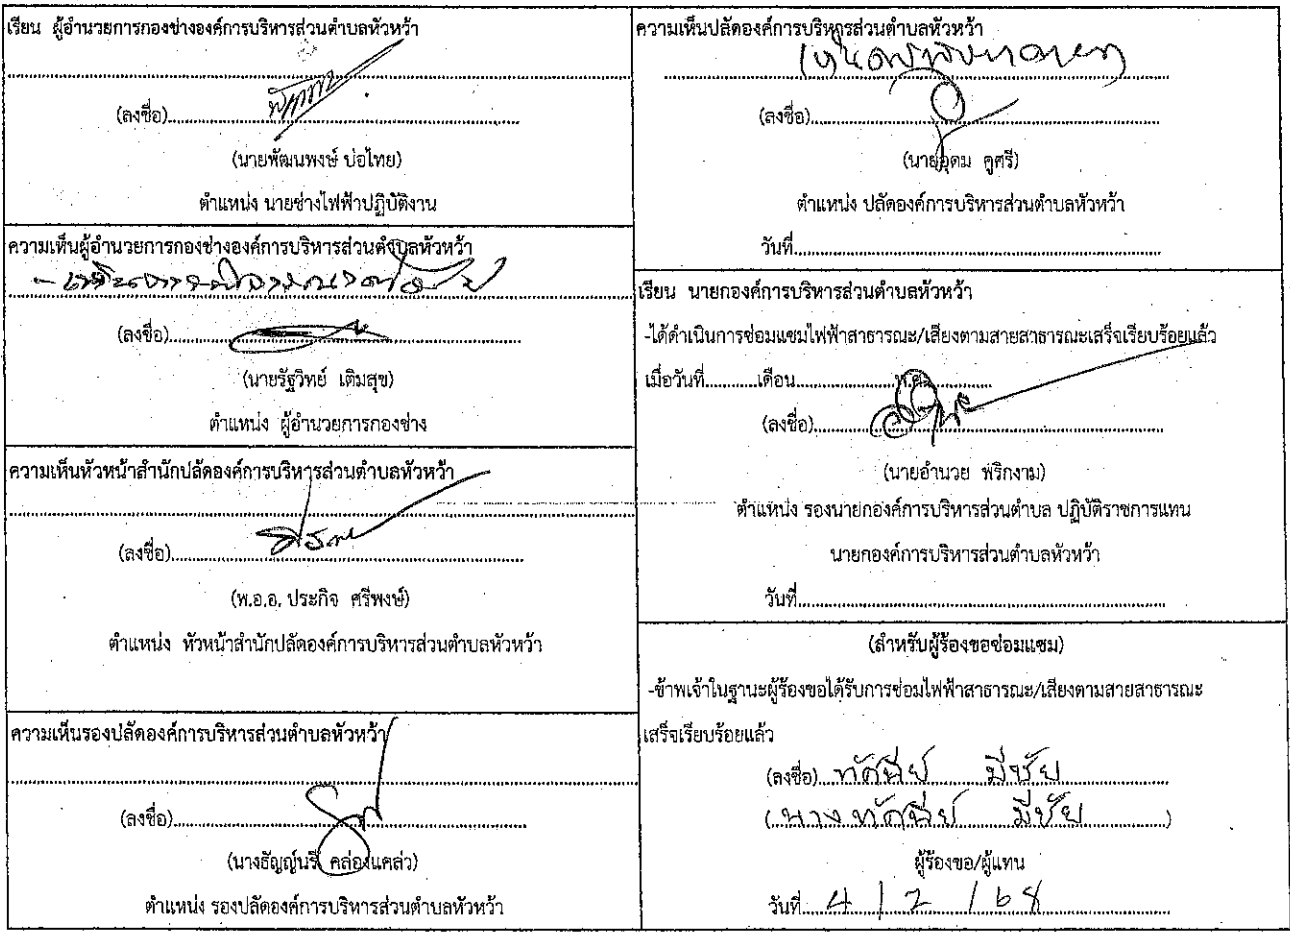 เรียน ผู้อำนวยการกองช่างองค์การบริหารส่วนตำบลหัวหว้า
(ลงชื่อ)
(นายพัฒนพงษ์ บ่อไทย)
ตำแหน่ง นายช่างไฟฟ้าปฏิบัติงาน
ความเห็นผู้อำนวยการกองช่างองค์การบริหารส่วนตำบลหัวหว้า
(ลงชื่อ)
(นายรัฐวิทย์ เติมสุข)
ตำแหน่ง ผู้อำนวยการกองช่าง
ความเห็นหัวหน้าสำนักปลัดองค์การบริหารส่วนตำบลหัวหว้า
(ลงชื่อ)
(พ.อ.อ. ประกิจ ศรีพงษ์)
ตำแหน่ง หัวหน้าสำนักปลัดองค์การบริหารส่วนตำบลหัวหว้า
ความเห็นรองปลัดองค์การบริหารส่วนตำบลหัวหว้า
(ลงชื่อ)
(นางธัญญ์นรี คล่องแคล่ว)
ตำแหน่ง รองปลัดองค์การบริหารส่วนตำบลหัวหว้า
ความเห็นปลัดองค์การบริหารส่วนตำบลหัวหว้า
(ลงชื่อ)
(นายอุดม ดูศรี)
ตำแหน่ง ปลัดองค์การบริหารส่วนตำบลหัวหว้า
วันที่
เรียน นายกองค์การบริหารส่วนตำบลหัวหว้า
-ได้ดำเนินการซ่อมแซมไฟฟ้าสาธารณะ/เสียงตามสายสาธารณะเสร็จเรียบร้อยแล้ว
เมื่อวันที่............เดือน.......................พ.ศ.
(ลงชื่อ)
(นายอำนวย พริกงาม)
ตำแหน่ง รองนายกองค์การบริหารส่วนตำบล ปฏิบัติราชการแทน
นายกองค์การบริหารส่วนตำบลหัวหว้า
วันที่
(สำหรับผู้ร้องขอซ่อมแซม)
-ข้าพเจ้าในฐานะผู้ร้องขอได้รับการซ่อมไฟฟ้าสาธารณะ/เสียงตามสายสาธารณะ
เสร็จเรียบร้อยแล้ว
(ลงชื่อ) มีชัย
(นาง มีชัย)
ผู้ร้องขอ/ผู้แทน
วันที่ 4 / 2 / 68